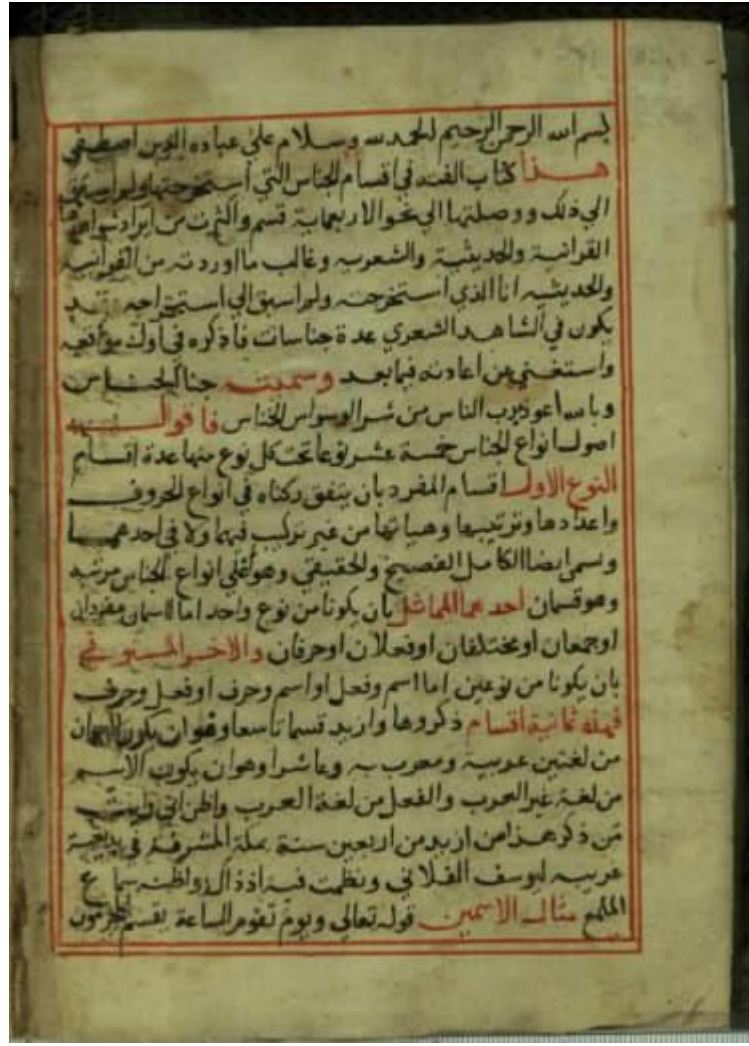 بسم الله الرحمن الرحيم الحمد لله وسلام علي عباده الذين اصطفي
هذا كتاب الفته في اقسام الجناس التي استخرجتها ولم اسبق
الي ذلك ووصلتها الي نحو الاربعماية قسم واكثرت من ايراد شواهدها
القرانية والحديثية والشعريه وغالب ما اوردته من القرانيه
والحديثيه انا الذي استخرجته ولم اسبق الي استخراجه وقد
يكون في الشاهد الشعري عدة جناسات فاذكره في اول مواقعه
واستغني عن اعادته فيما بعد وسميته جنا الجناس
وبالله اعوذ برب الناس من شر الوسواس الخناس فاقول
اصول انواع الجناس خمسة عشر نوعا تحت كل نوع منها عدة اقسام
النوع الاول اقسام المفرد بان يتفق ركناه في انواع الحروف
واعدادها وترتيبها وهياتها من غير تركيب فيهما ولا في احدهما
ويسمي ايضا الكامل الفصيح والحقيقي وهو اعلي انواع الجناس مرتبه
وهو قسمان احدهما المماثل بان يكونا من نوع واحد اما اسمان مفردان
او جمعان او مختلفان او فعلان او حرفان والاخر المستوفي
بان يكونا من نوعين اما اسم وفعل او اسم وحرف او فعل وحرف
فهذه ثمانية اقسام ذكروها وازيد قسما تاسعا وهو ان يكون الاسمان
من لغتين عربية ومعرب به وعاشرا وهو ان يكون الاسم
من لغة غير العرب والفعل من لغة العرب واظن اني رايت
من ذكر هذا من ازيد من اربعين سنة بمكة المشرفة في بديعية
غريبه ليوسف القلاني ونظمت فيه اذ ذاك
الملمع مثال الاسمين قوله تعالي ويوم تقوم الساعة يقسم المجرمون